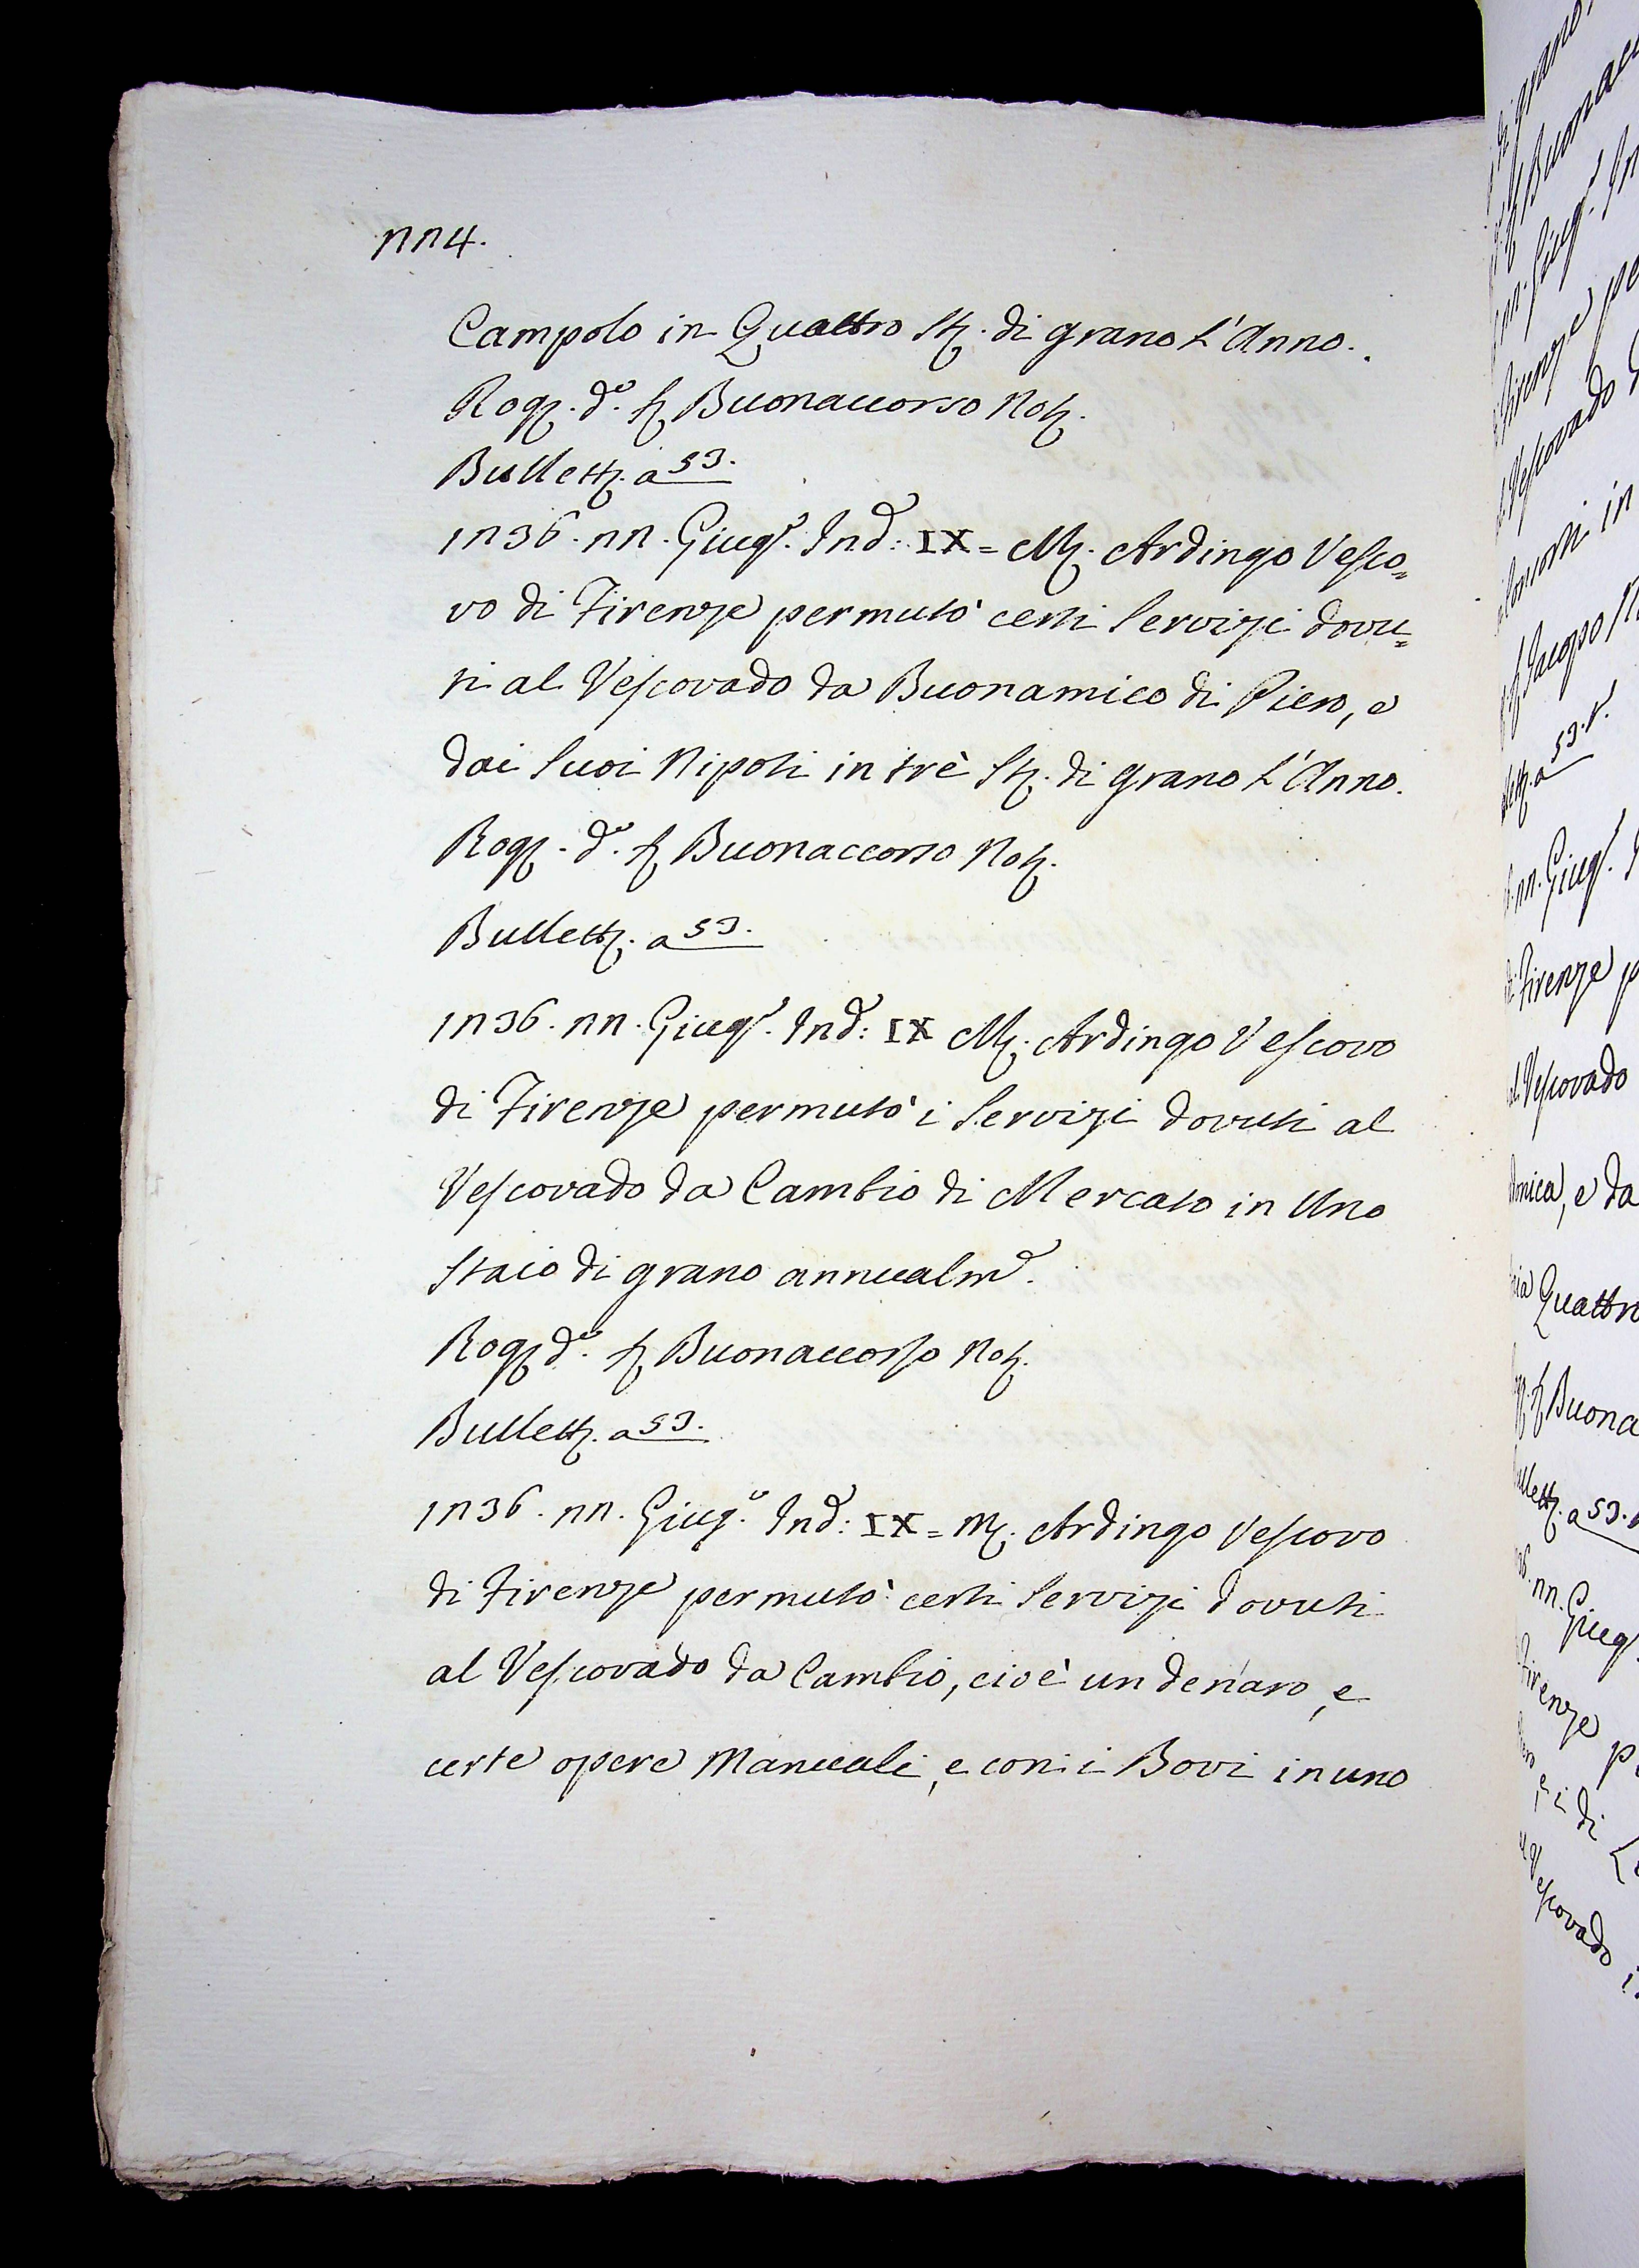 224.
Campolo in Quattro St. di grano l'Anno.
Rog. d.° S. Buonaccorso Not.
Bullett. a 53.
1236. 22. Giug.° Ind: IX = M. Ardingo Vesco=
vo di Firenze permutò certi Servizi dovu=
ti al Vescovado da Buonamico di Piero, e
dai suoi Nipoti in trè St. di grano l'Anno.
Rog. d.° S. Buonaccorso Not.
Bullett. a 53.
1236. 22. Giug.° Ind: IX M. Ardingo Vescovo
di Firenze permutò i Servizi dovuti al
Vescovado da Cambio di Mercato in Uno
staio di grano annualm.e
Rog. d.° S. Buonaccorso Not.
Bullett. a 53.
1236. 22. Giug.° Ind: IX = M. Ardingo Vescovo
di Firenze permutò certi Servizi dovuti
al Vescovado da Cambio, cioè un denaro, e
certe opere Manuali, e con i Bovi in uno
di grano
Giug.°
Firenze
Vescovado
in
Jacopo
53. t.
22. Giug.°
di Firenze
Vescovado
e da
Quattro
Buona
a 53.
22. Giug.°
Firenze
di
Vescovado